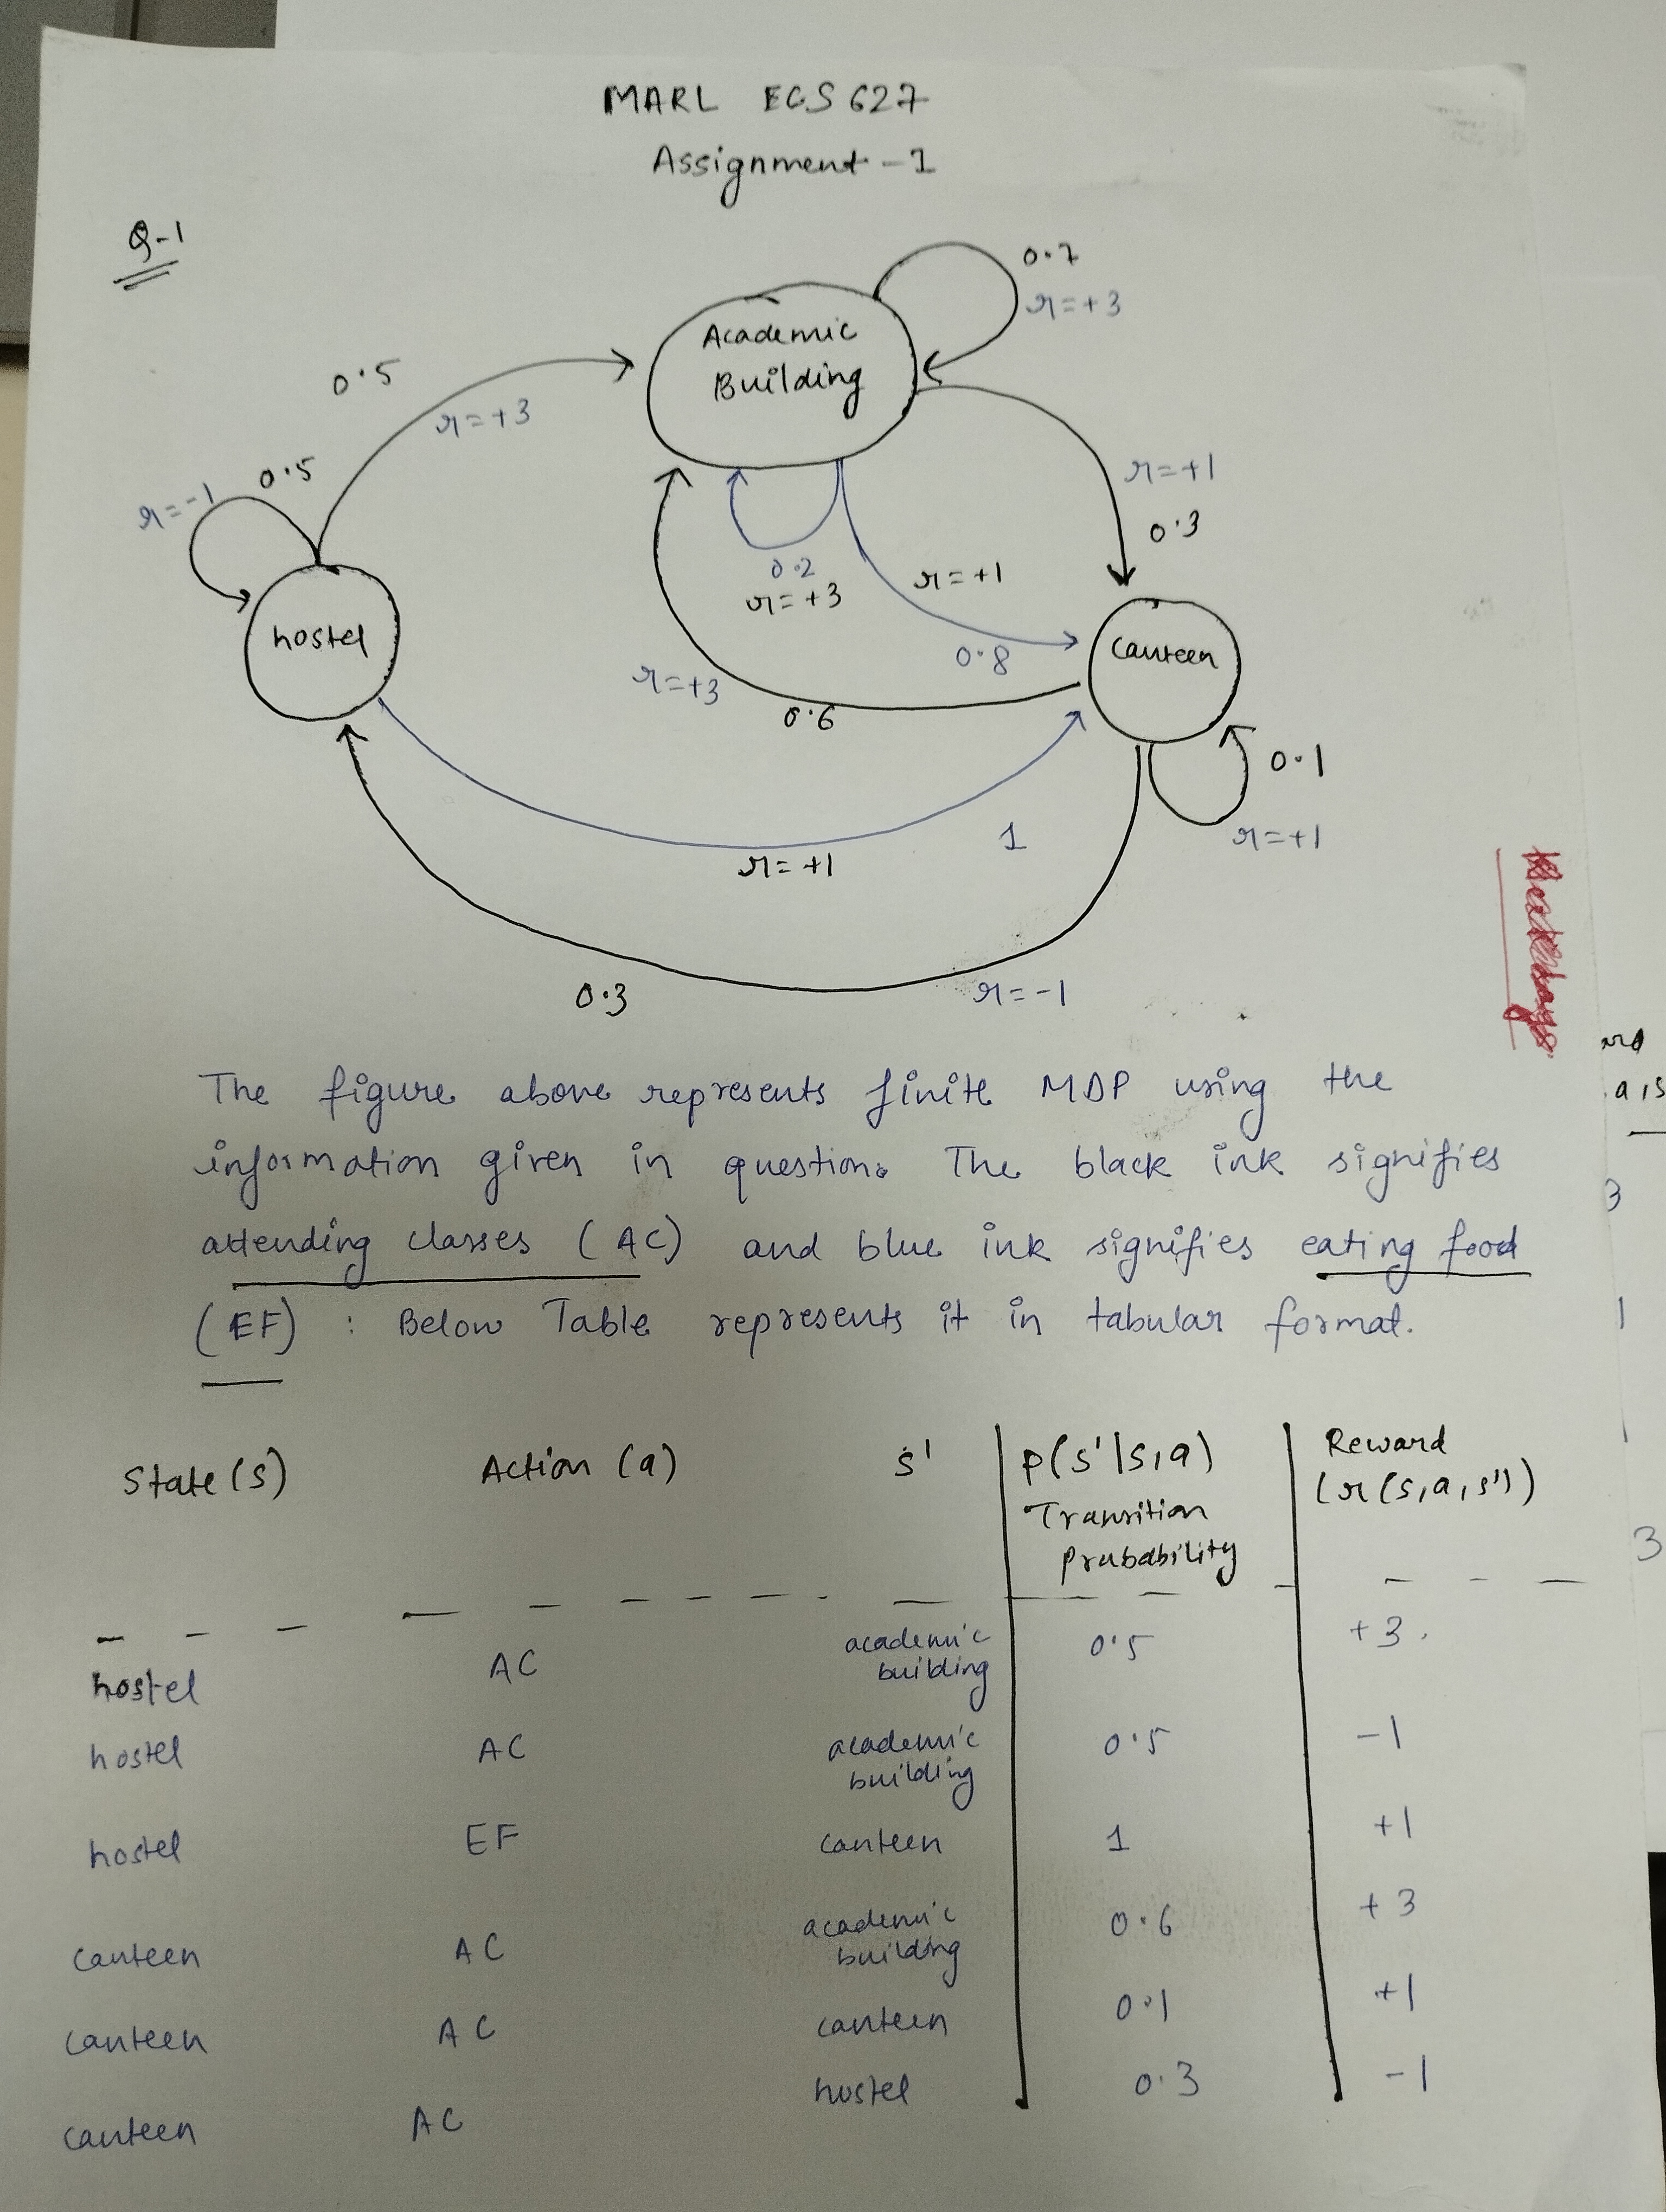 MARL ECS 627
Assignment - 1
Q-1
0.7
r=+3
Academic
Building
0.5
r=+3
0.5
r=-1
r=+1
0.3
0.2
r=+3
r=+1
0.8
hostel
canteen
r=+3
0.6
0.1
r=+1
1
r=+1
0.3
r=-1
The figure above represents finite MDP using the
information given in question. The black ink signifies
attending classes (AC) and blue ink signifies eating food
(EF) : Below Table represents it in tabular format.
State (s) Action (a) s' p(s'|s,a) Reward
Transition (r(s,a,s'))
Probability
hostel AC academic building 0.5 +3.
hostel AC academic building 0.5 -1
hostel EF canteen 1 +1
canteen AC academic building 0.6 +3
canteen AC canteen 0.1 +1
canteen AC hostel 0.3 -1
a,s
3
1
3